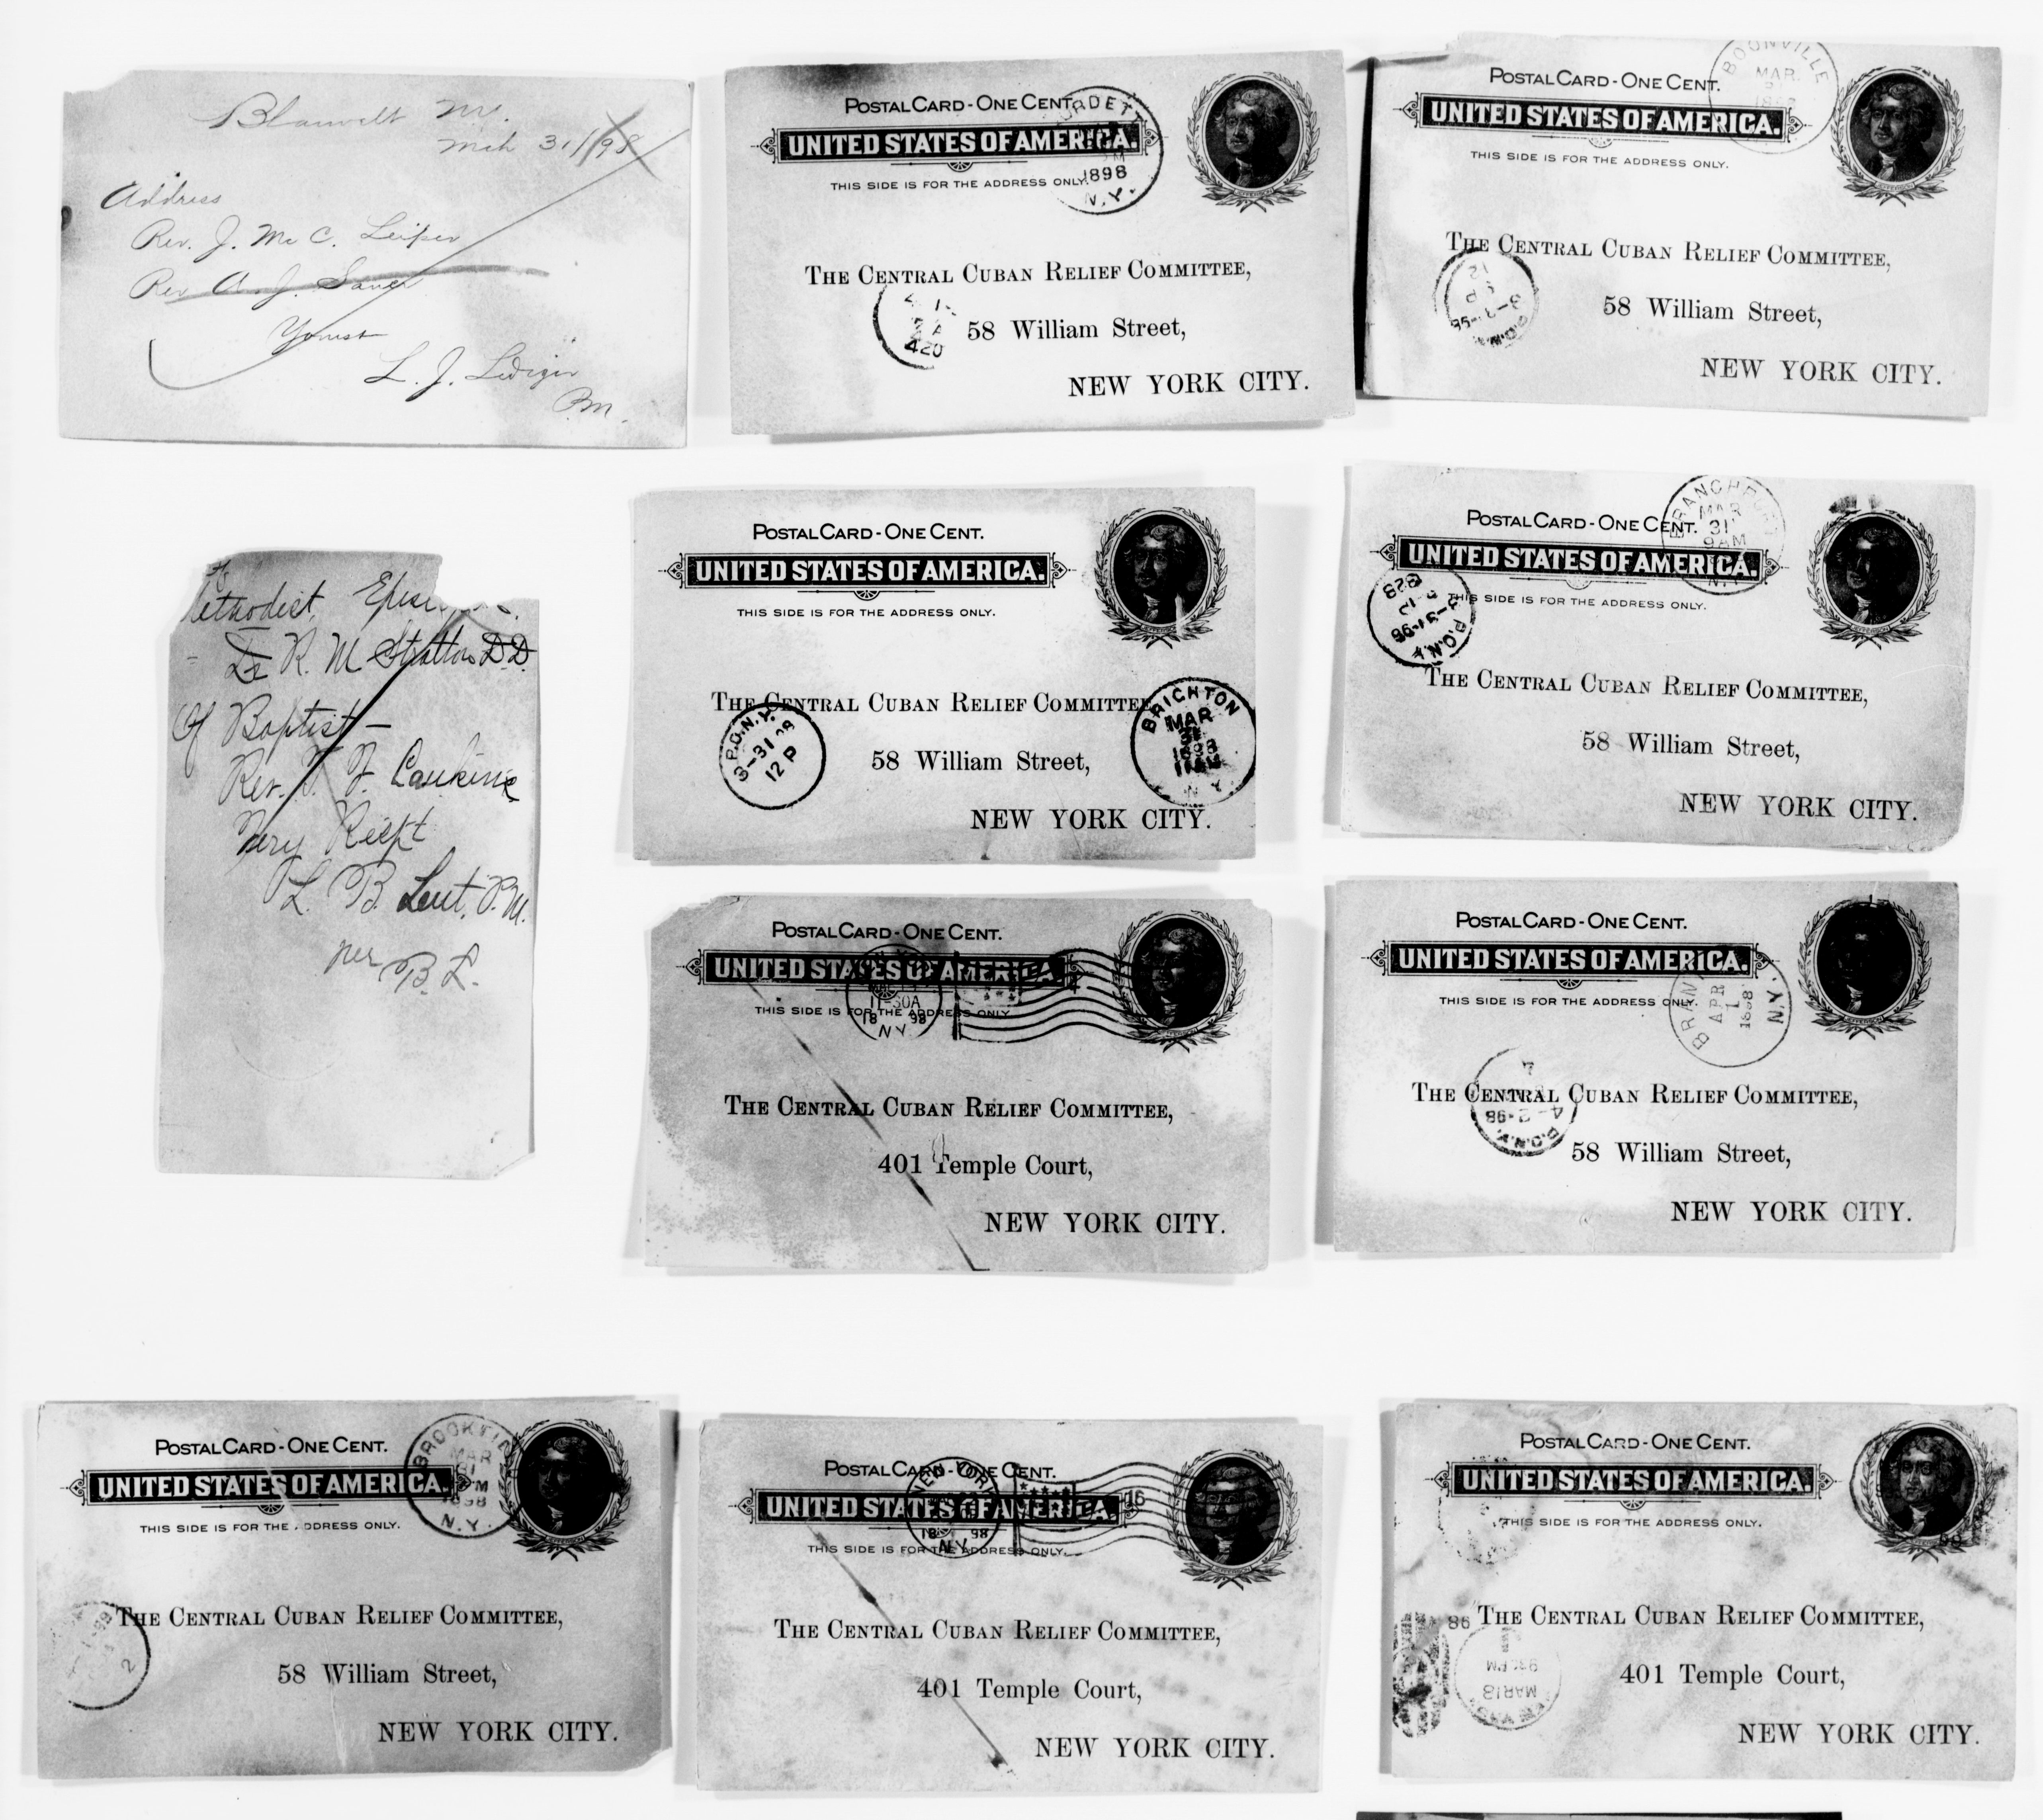 Blauvelt NY.
Mch 31/98
Address
Rev. J. Mc C. Leiper
Rev A. J. Sauer
Yours
L. J.
P.M.
POSTAL CARD - ONE CENT.
UNITED STATES OF AMERICA.
THIS SIDE IS FOR THE ADDRESS ONLY.
1898
N.Y.
THE CENTRAL CUBAN RELIEF COMMITTEE,
58 William Street,
420
NEW YORK CITY.
POSTAL CARD - ONE CENT.
BOONVILLE
MAR.
UNITED STATES OF AMERICA.
THIS SIDE IS FOR THE ADDRESS ONLY.
THE CENTRAL CUBAN RELIEF COMMITTEE,
58 William Street,
NEW YORK CITY.
Methodist
R. M Stratton D.D.
Of Baptist —
Rev.
Very Rspt
L. B. Lent, P.M.
per B. L.
POSTAL CARD - ONE CENT.
UNITED STATES OF AMERICA.
THIS SIDE IS FOR THE ADDRESS ONLY.
THE CENTRAL CUBAN RELIEF COMMITTEE,
P.O.N.Y.
3-31 98
12 P
BRIGHTON
MAR
31
1898
N.Y.
58 William Street,
NEW YORK CITY.
POSTAL CARD - ONE CENT.
BRANCHPORT
MAR
31
9 AM
UNITED STATES OF AMERICA.
THIS SIDE IS FOR THE ADDRESS ONLY.
828
3-31-98
P.O.N.Y.
THE CENTRAL CUBAN RELIEF COMMITTEE,
58 William Street,
NEW YORK CITY.
POSTAL CARD - ONE CENT.
UNITED STATES OF AMERICA.
11-30A
18 98
N.Y.
THIS SIDE IS FOR THE ADDRESS ONLY.
THE CENTRAL CUBAN RELIEF COMMITTEE,
401 Temple Court,
NEW YORK CITY.
POSTAL CARD - ONE CENT.
UNITED STATES OF AMERICA.
THIS SIDE IS FOR THE ADDRESS ONLY.
APR
1
1898
N.Y.
THE CENTRAL CUBAN RELIEF COMMITTEE,
4-2-98
P.O.N.Y.
58 William Street,
NEW YORK CITY.
POSTAL CARD - ONE CENT.
UNITED STATES OF AMERICA.
MAR
31
1898
N.Y.
THIS SIDE IS FOR THE ADDRESS ONLY.
THE CENTRAL CUBAN RELIEF COMMITTEE,
2
58 William Street,
NEW YORK CITY.
POSTAL CARD - ONE CENT.
UNITED STATES OF AMERICA.
NEW YORK
18 98
N.Y.
16
THIS SIDE IS FOR THE ADDRESS ONLY.
THE CENTRAL CUBAN RELIEF COMMITTEE,
401 Temple Court,
NEW YORK CITY.
POSTAL CARD - ONE CENT.
UNITED STATES OF AMERICA.
THIS SIDE IS FOR THE ADDRESS ONLY.
98
THE CENTRAL CUBAN RELIEF COMMITTEE,
MAR 18
401 Temple Court,
NEW YORK CITY.